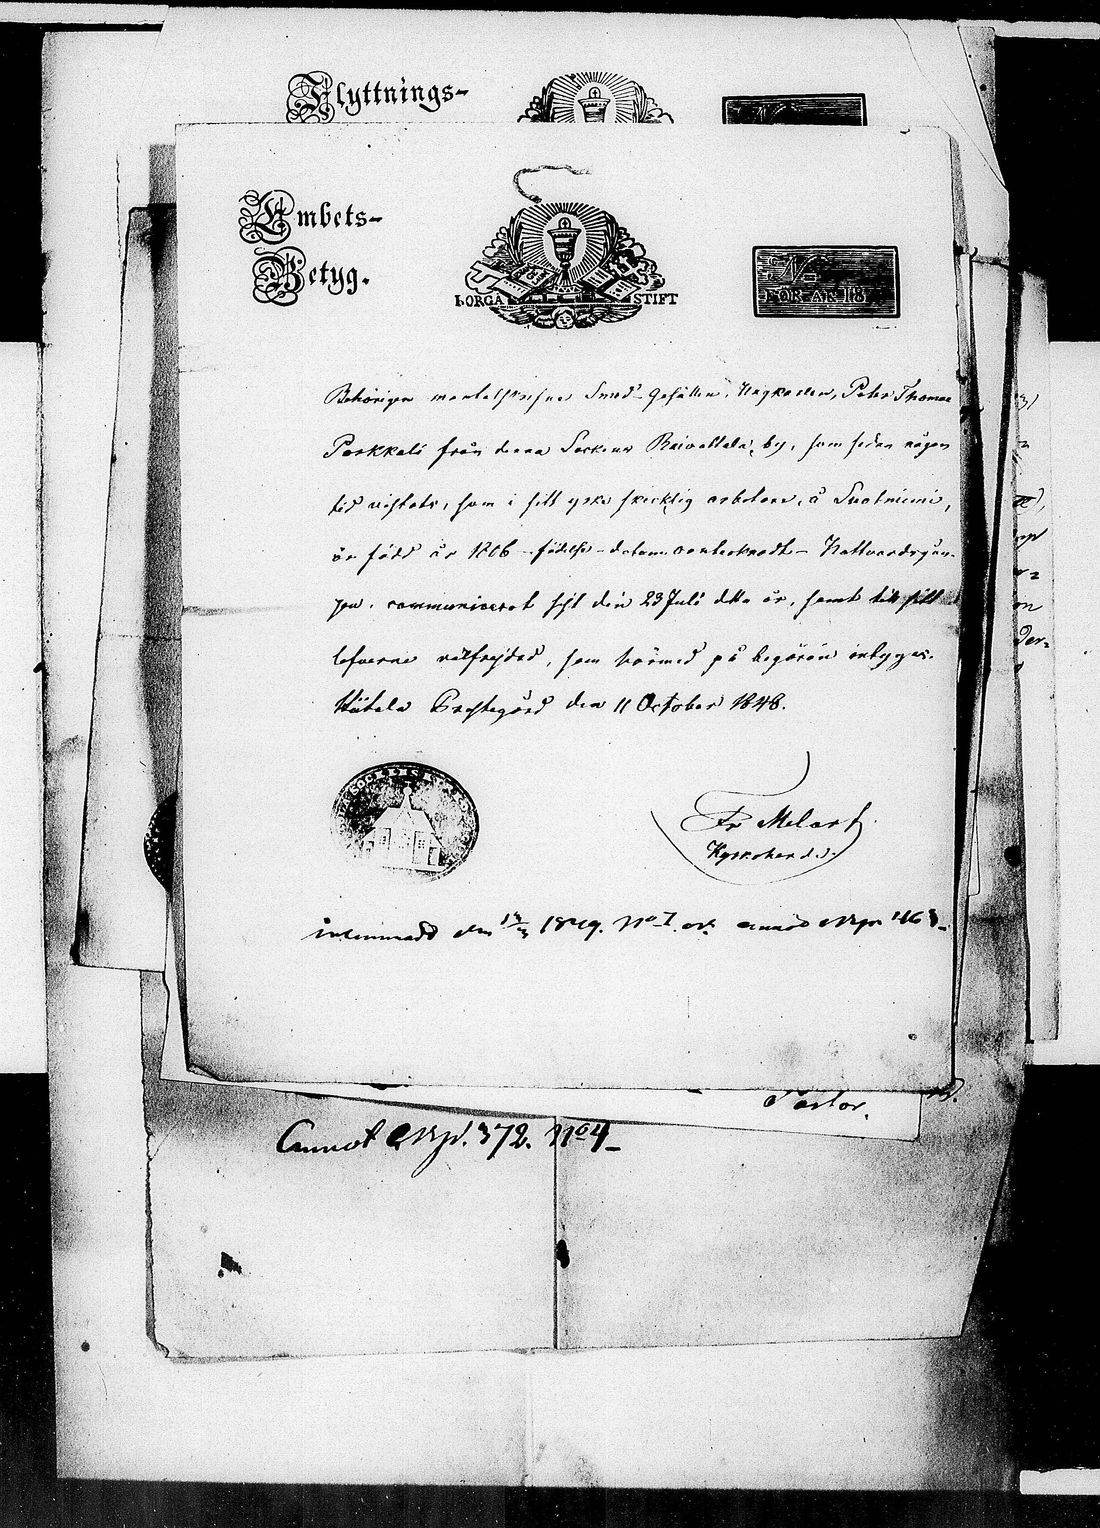 Flyttnings-
Embets-
Betyg.
BORGÅ STIFT
No
FÖR ÅR 18
Behörigen mantalskrifne Smed-Gesällen, Ungkarlen, Peter Thomae
Parkkali från denna Sockens Raivattala by, som sedan någon
tid vistats, som i sitt yrke skicklig arbetare, å Suotniemi,
är född år 1806 - födelse-datum oantecknadt - Nattvardsgån-
gen communicerat sist den 23 Juli detta år, samt till sitt
lefverne välfrejdad, som härmed på begäran intygas.
Hiitola Prestegård den 11 October 1848.
Fr Melart
Kyrkoherde.
inlemnadd den 1849. No 1. och annot 463
Pastor.
Annot 372. No 4